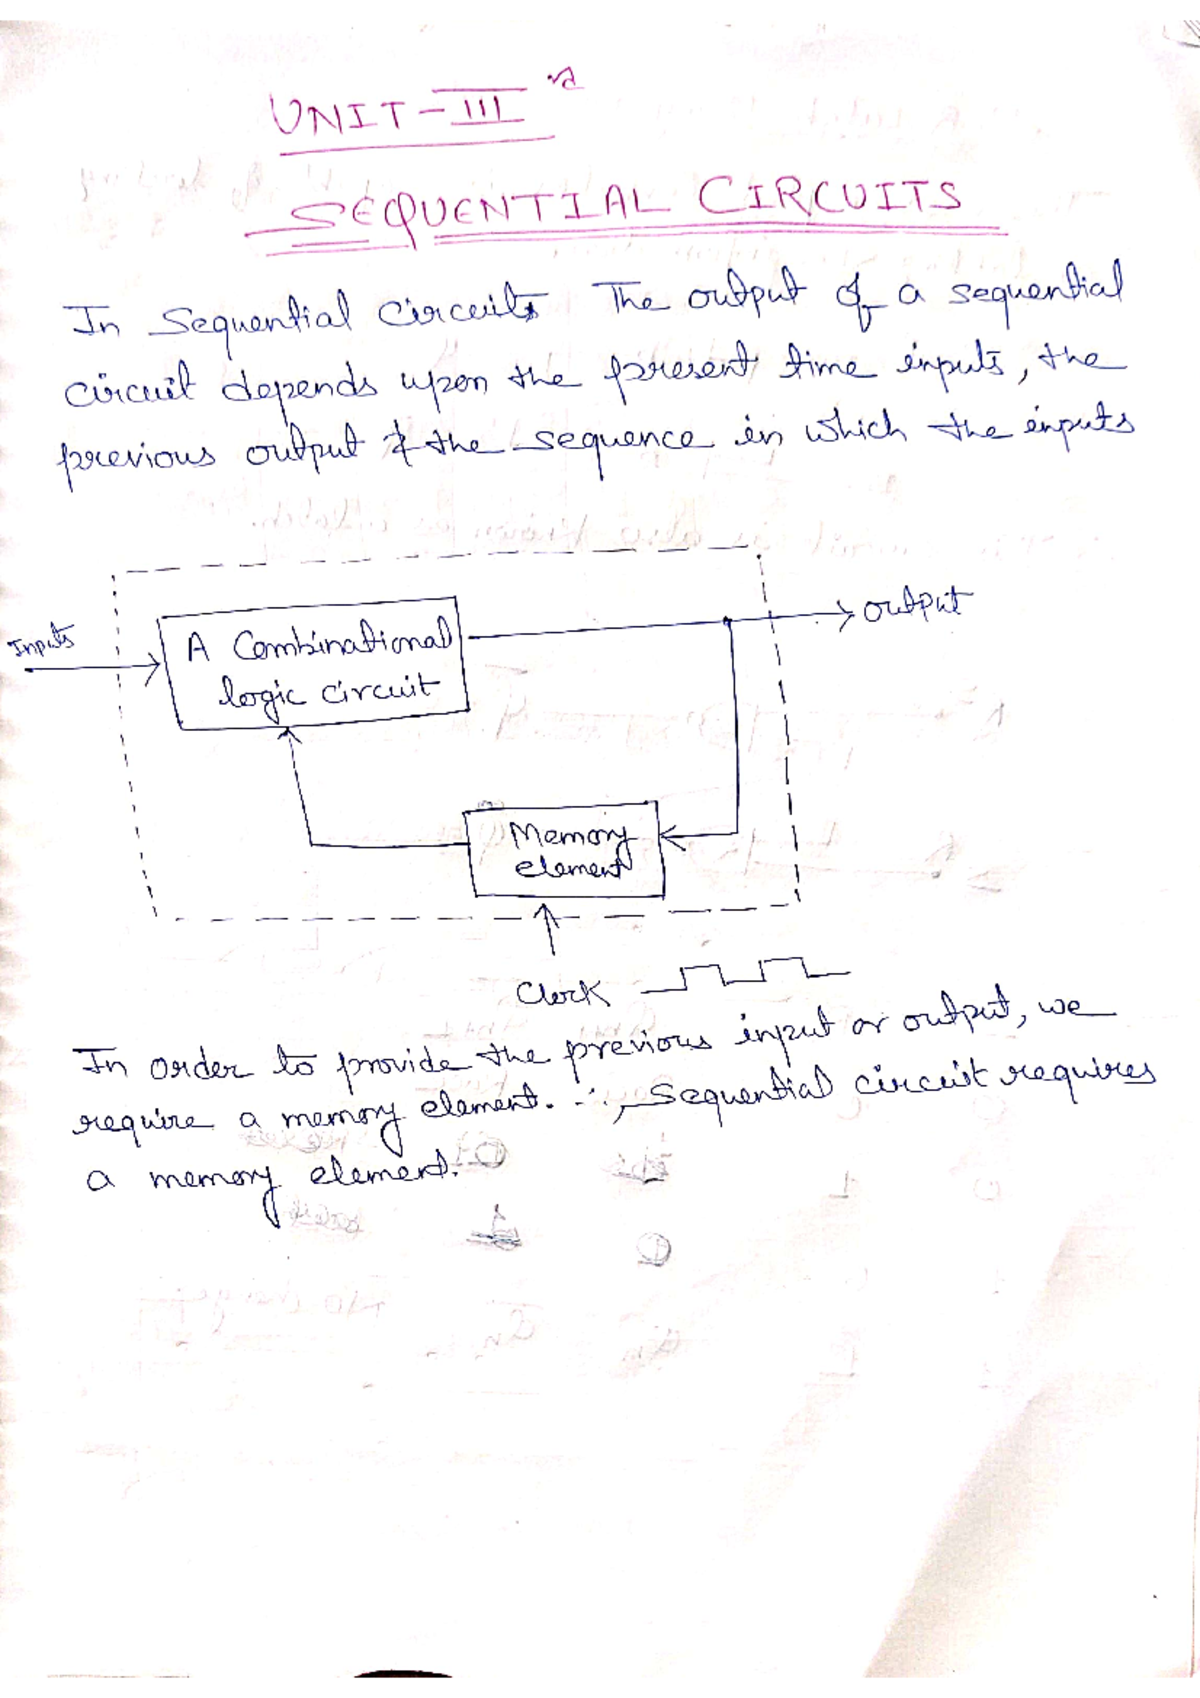 UNIT-III
SEQUENTIAL CIRCUITS
In Sequential Circuits The output of a sequential
circuit depends upon the present time inputs, the
previous output & the sequence in which the inputs
Inputs
A Combinational
logic circuit
output
Memory
element
Clock
In order to provide the previous input or output, we
require a memory element. ∴, Sequential circuit requires
a memory element.